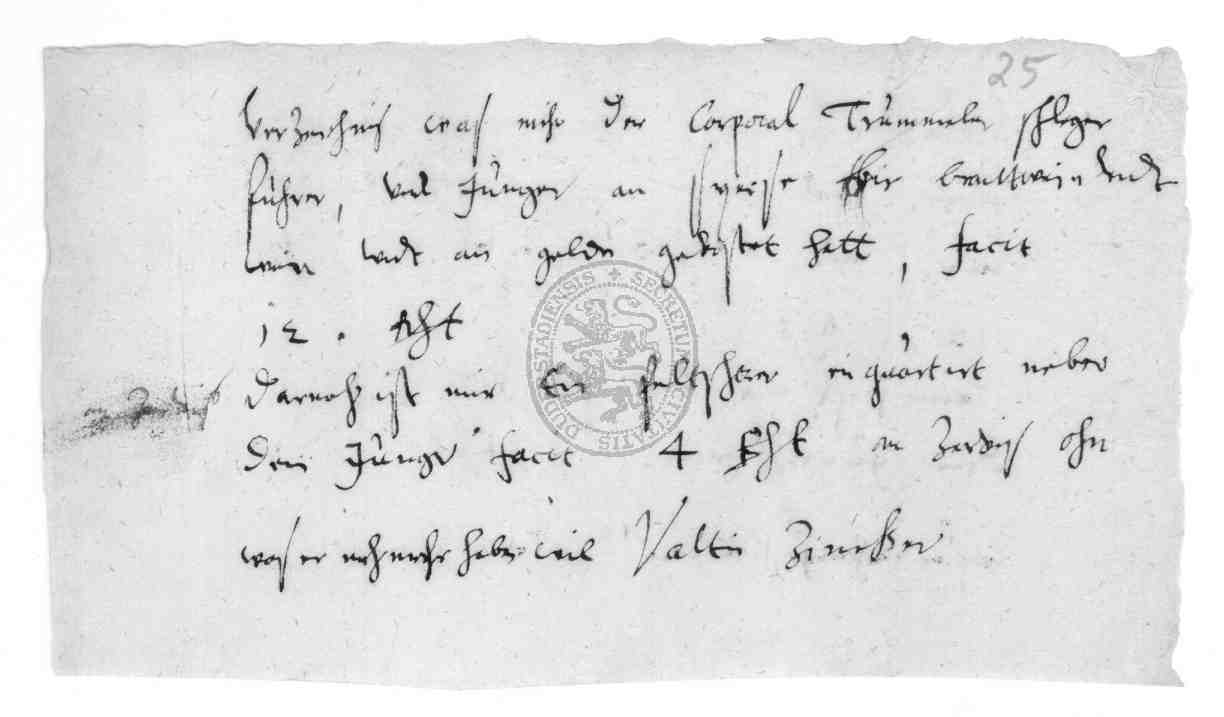 25
Verzeichnis was mihr der Corporal Trummelnschleger
führer, undt Junger an speise bir brantwein undt
wein undt an gelde gekostet hatt, facit
12. Rht
darnach ist mir ein feltscherer einquartirt neben
dem Junger facit 4 Rht an Zerdis ohn
was er noch mehr haben wil Valtin Zincker
SECRETUM CIVITATIS DUDERSTADIENSIS